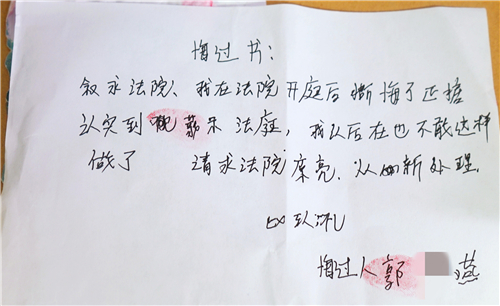 悔过书:
叙永法院、我在法院开庭后撕悔了正据
认实到 法庭，我以后在也不敢这样
做了 请求法院 亮、从 新处理.
此 礼
悔过人郭 燕